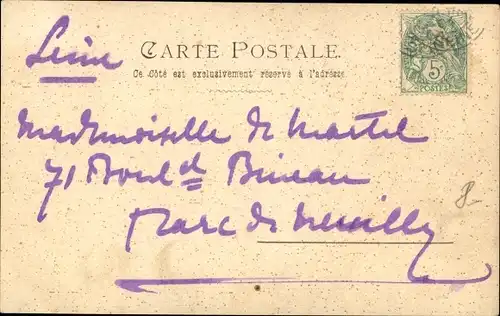 Seine
CARTE POSTALE.
Ce Côté est exclusivement réservé à l'adresse
5c
POSTES
Mademoiselle de Martel
71 Bould Bineau
Parc de Neuilly
8-